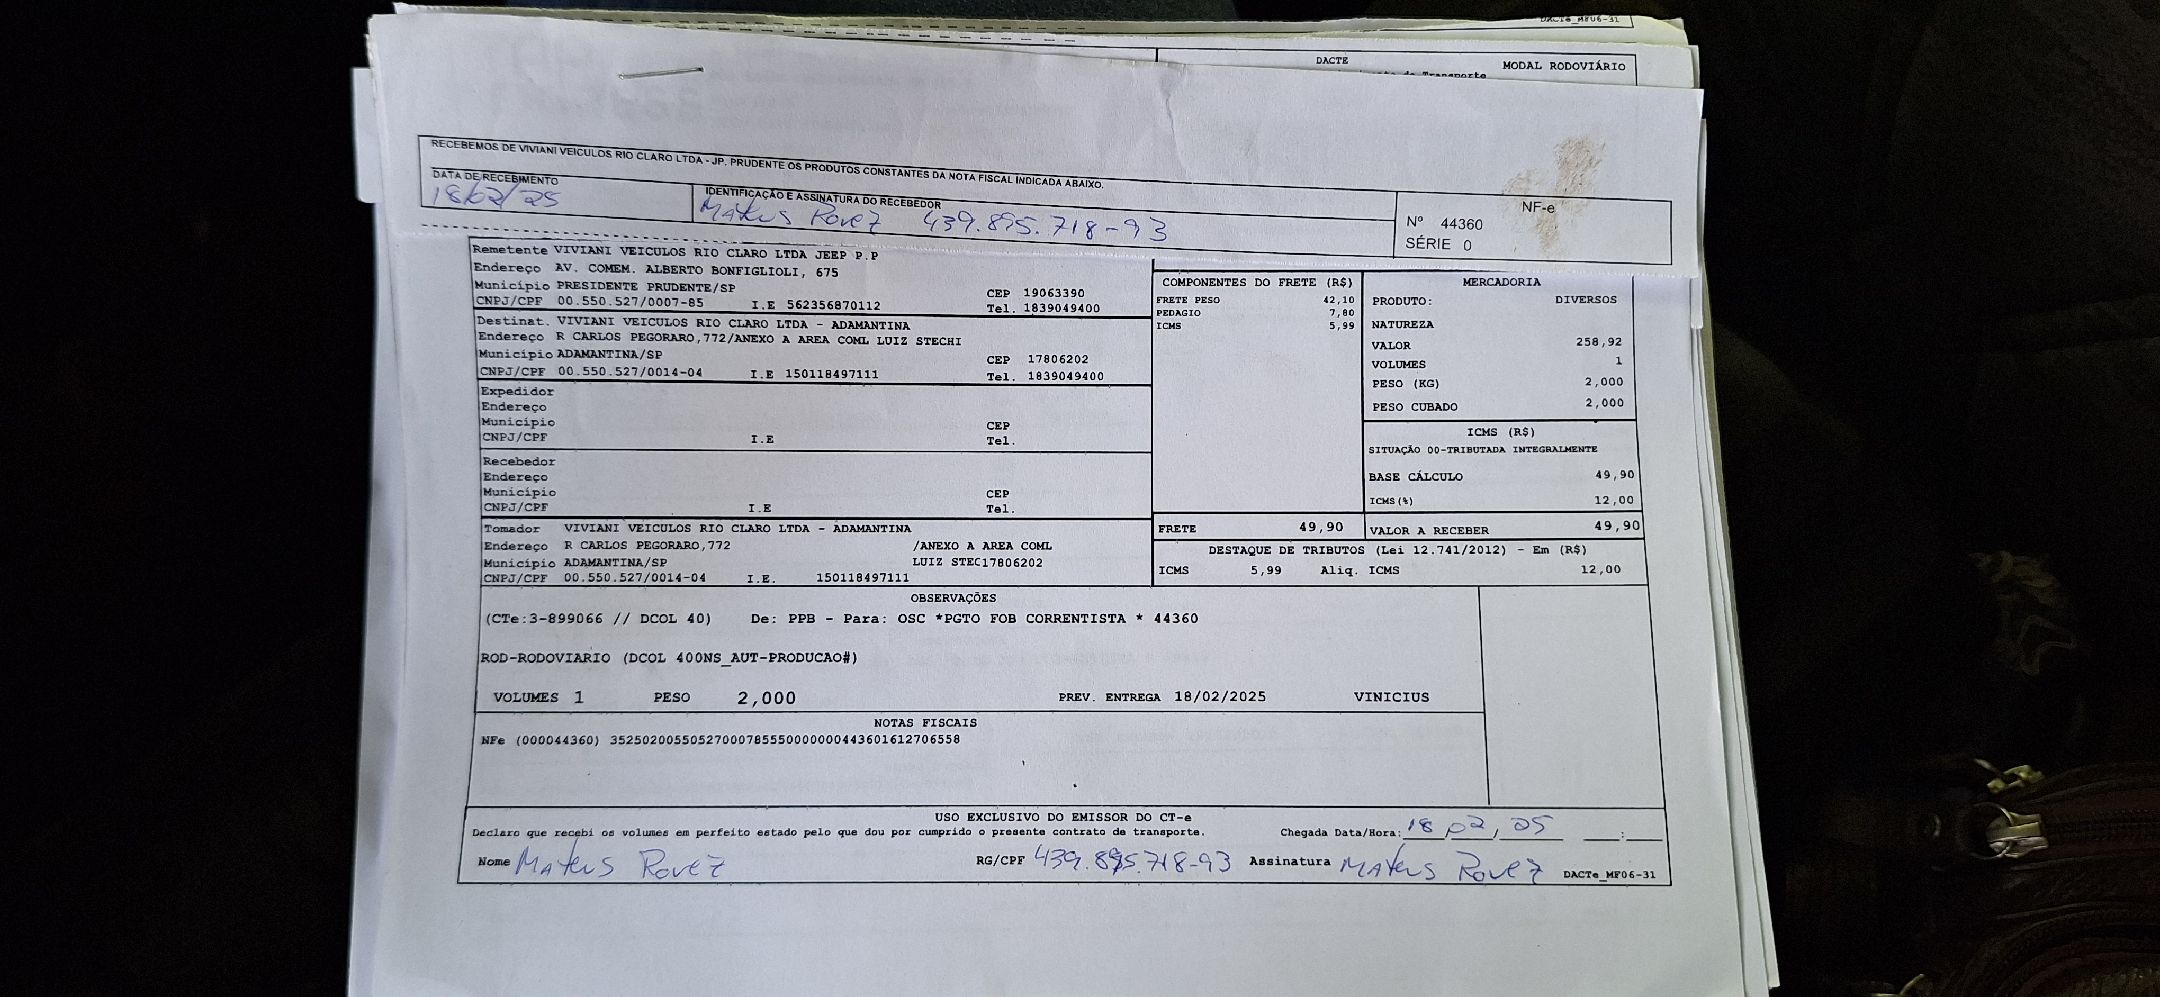 DACTe_MF06-31
DACTE
MODAL RODOVIÁRIO
RECEBEMOS DE VIVIANI VEICULOS RIO CLARO LTDA - JP. PRUDENTE OS PRODUTOS CONSTANTES DA NOTA FISCAL INDICADA ABAIXO.
DATA DE RECEBIMENTO
18/02/25
IDENTIFICAÇÃO E ASSINATURA DO RECEBEDOR
Mateus Rovez 439.895.718-93
NF-e
Nº 44360
SÉRIE 0
Remetente VIVIANI VEICULOS RIO CLARO LTDA JEEP P.P
Endereço AV. COMEM. ALBERTO BONFIGLIOLI, 675
Município PRESIDENTE PRUDENTE/SP CEP 19063390
CNPJ/CPF 00.550.527/0007-85 I.E 562356870112 Tel. 1839049400
Destinat. VIVIANI VEICULOS RIO CLARO LTDA - ADAMANTINA
Endereço R CARLOS PEGORARO,772/ANEXO A AREA COML LUIZ STECHI
Município ADAMANTINA/SP CEP 17806202
CNPJ/CPF 00.550.527/0014-04 I.E 150118497111 Tel. 1839049400
Expedidor
Endereço
Município CEP
CNPJ/CPF I.E Tel.
Recebedor
Endereço
Município CEP
CNPJ/CPF I.E Tel.
Tomador VIVIANI VEICULOS RIO CLARO LTDA - ADAMANTINA
Endereço R CARLOS PEGORARO,772 /ANEXO A AREA COML
Município ADAMANTINA/SP LUIZ STEC17806202
CNPJ/CPF 00.550.527/0014-04 I.E. 150118497111
COMPONENTES DO FRETE (R$)
FRETE PESO 42,10
PEDAGIO 7,80
ICMS 5,99
FRETE 49,90
MERCADORIA
PRODUTO: DIVERSOS
NATUREZA
VALOR 258,92
VOLUMES 1
PESO (KG) 2,000
PESO CUBADO 2,000
ICMS (R$)
SITUAÇÃO 00-TRIBUTADA INTEGRALMENTE
BASE CÁLCULO 49,90
ICMS(%) 12,00
VALOR A RECEBER 49,90
DESTAQUE DE TRIBUTOS (Lei 12.741/2012) - Em (R$)
ICMS 5,99 Aliq. ICMS 12,00
OBSERVAÇÕES
(CTe:3-899066 // DCOL 40) De: PPB - Para: OSC *PGTO FOB CORRENTISTA * 44360
ROD-RODOVIARIO (DCOL 400NS_AUT-PRODUCAO#)
VOLUMES 1 PESO 2,000 PREV. ENTREGA 18/02/2025 VINICIUS
NOTAS FISCAIS
NFe (000044360) 35250200550527000785550000000443601612706558
USO EXCLUSIVO DO EMISSOR DO CT-e
Declaro que recebi os volumes em perfeito estado pelo que dou por cumprido o presente contrato de transporte. Chegada Data/Hora: 18 02, 25 :
Nome Mateus Rovez RG/CPF 439.895.718-93 Assinatura Mateus Rovez DACTe_MF06-31